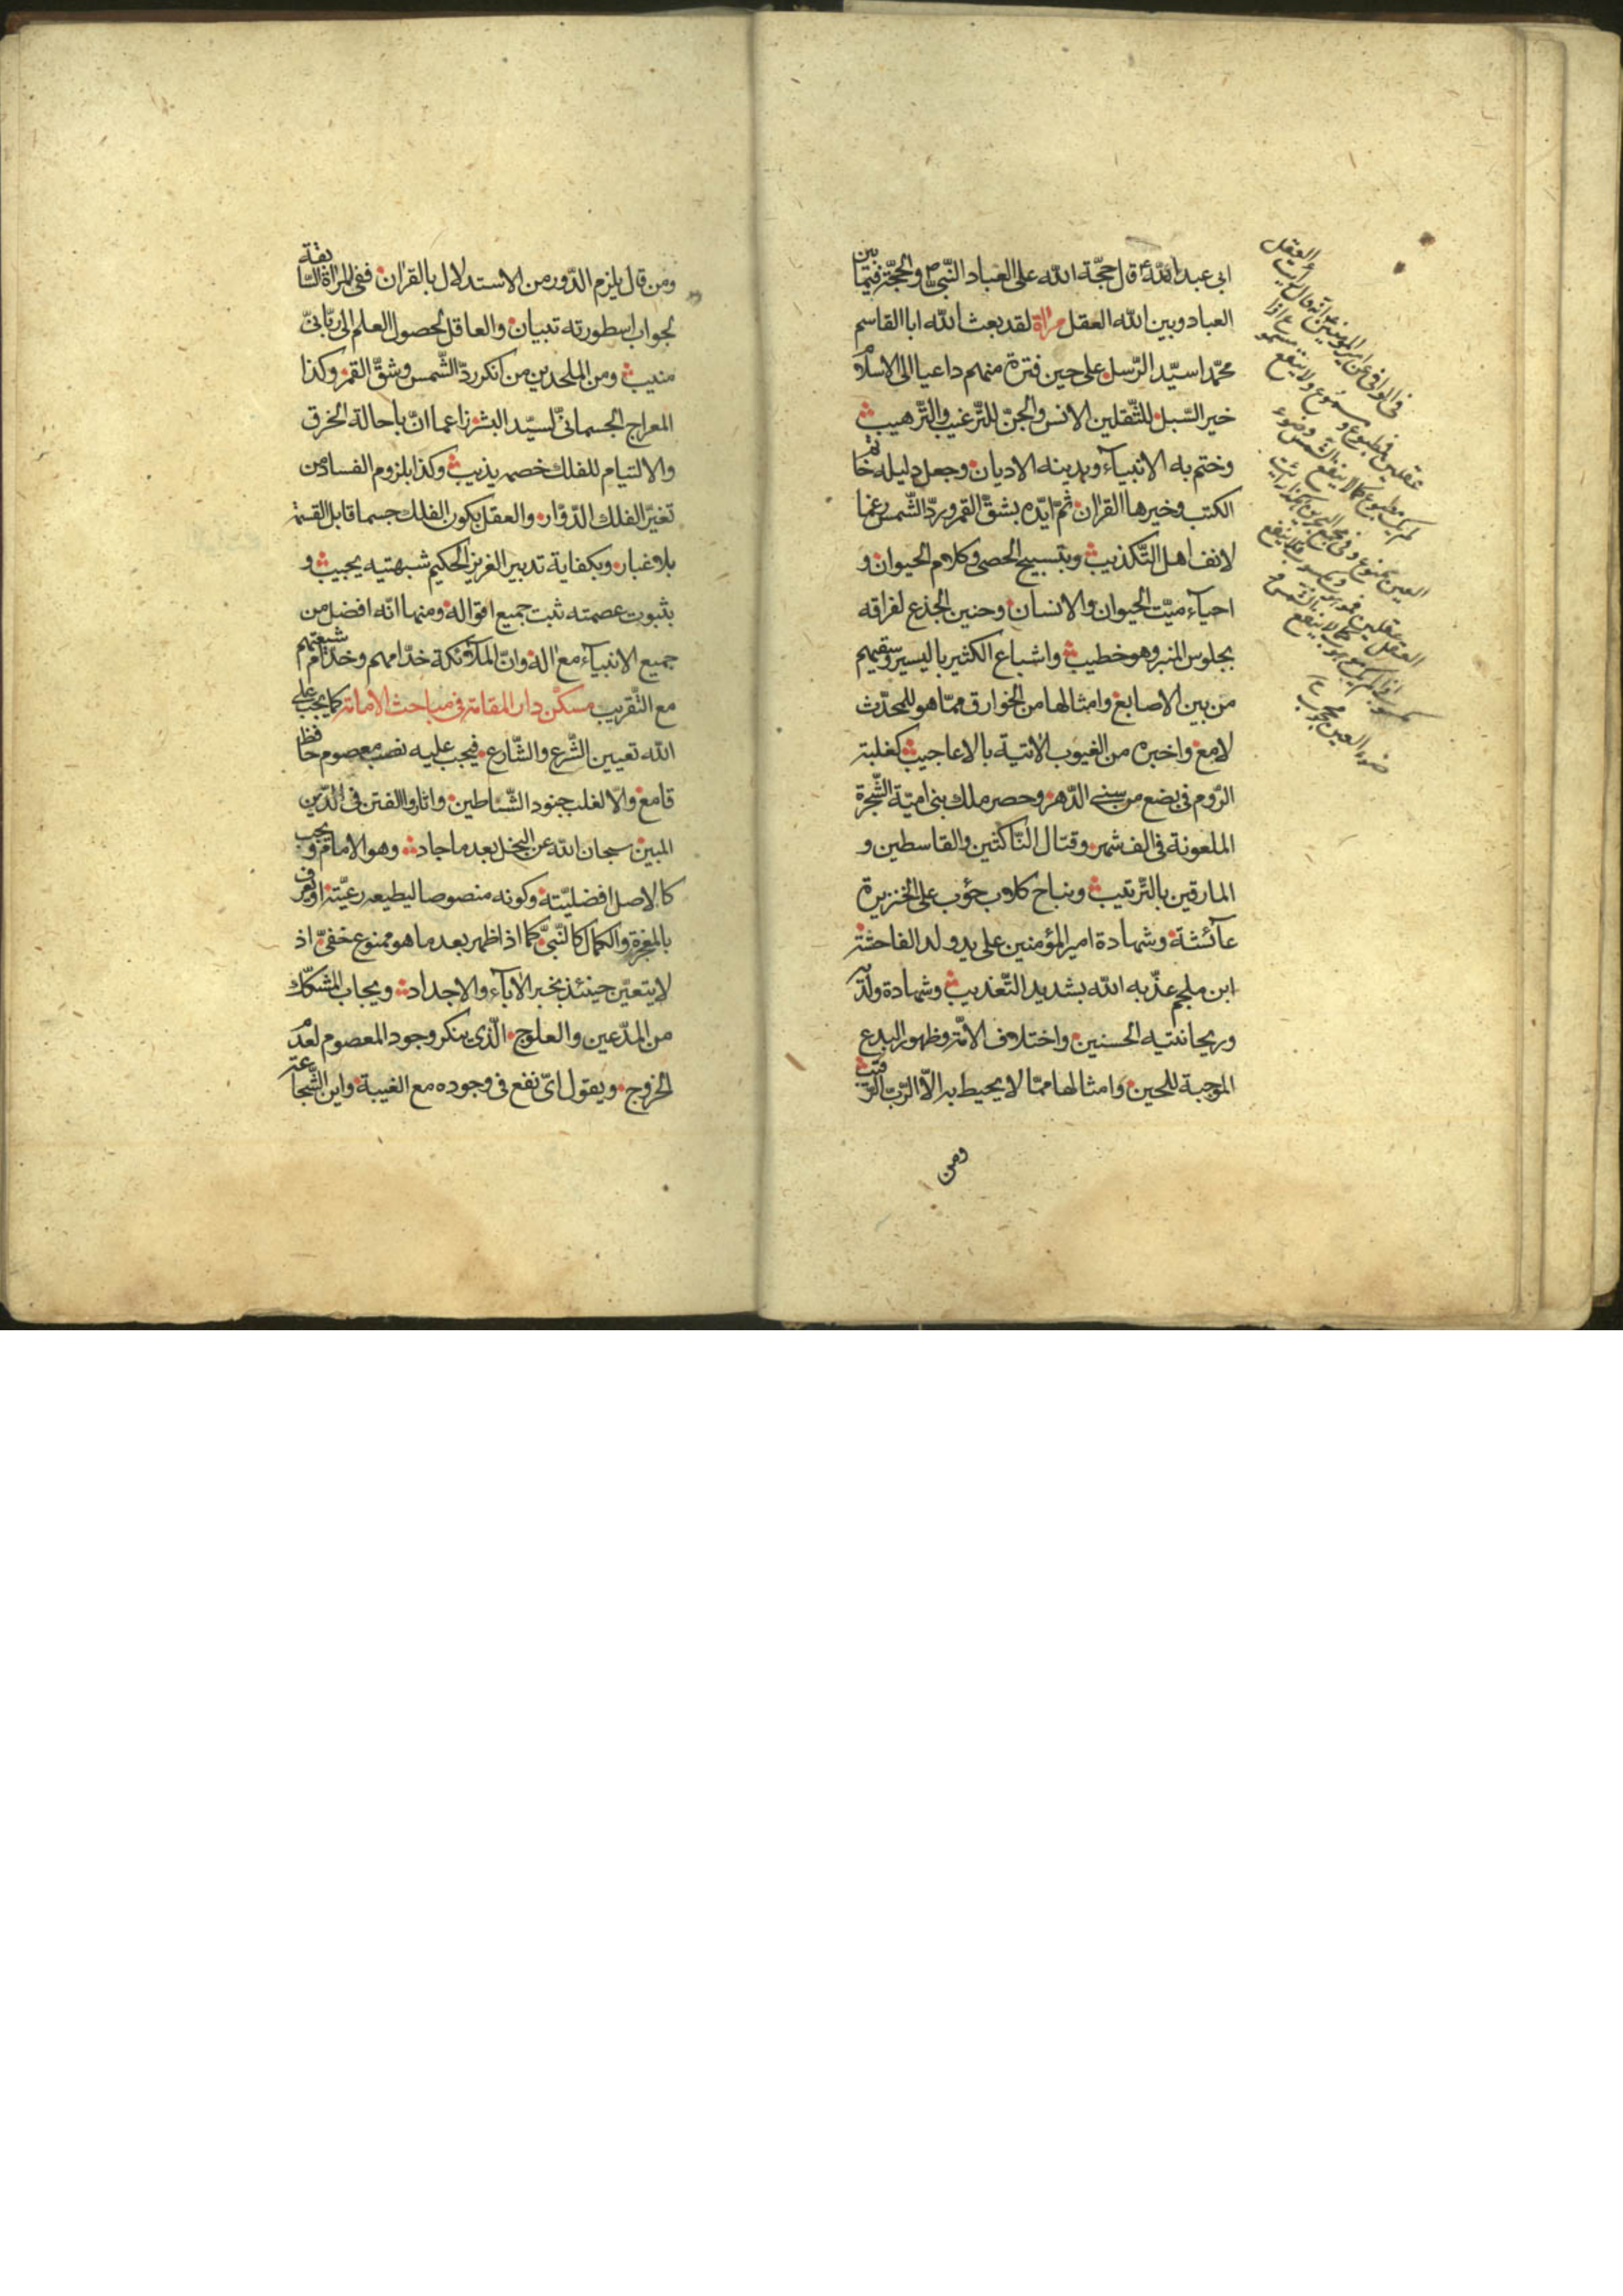 ابى عبد اللّه ع قال حجّة اللّه على العباد النّبىّ ص والحجّة فيما بين
العباد وبين اللّه العقل مراة لقد بعث اللّه ابا القاسم
محمّدا سيّد الرّسل على حين فترة منهم داعيا الى الاسلام
خير السّبل للثّقلين الانس والجنّ للتّرغيب والتّرهيب
وختم به الانبيآء وبدينه الاديان وجعل دليله خاتم
الكتب وخيرها القران ثمّ ايّده بشقّ القمر وردّ الشّمس رغما
لانف اهل التّكذيب وبتسبيح الحصى وكلام الحيوان و
احيآء ميّت الحيوان والانسان وحنين الجذع لفراقه
بجلوس المنبر وهو خطيب واشباع الكثير باليسير وسقيهم
من بين الاصابع وامثالها من الخوارق ممّا هو للمحدّث
لامع واخبره من الغيوب الاتية بالاعاجيب كغلبة
الرّوم فى بضع من سنى الدّهر وحصر ملك بنى اميّة الشّجرة
الملعونة فى الف شهر وقتال النّاكثين والقاسطين و
المارقين بالتّرتيب ونباح كلاب حؤب على الخنزيرة
عآئشة وشهادة امير المؤمنين على يد ولد الفاحشة
ابن ملجم عذّبه اللّه بشديد التّعذيب وشهادة ولديه
وريحانتيه الحسنين واختلاف الامّة وظهور البدع
الموجبة للحين وامثالها ممّا لا يحيط به الّا الرّبّ الرّقيب
ومن
فى الوافى عن امير المؤمنين ع انه قال رايت العقل
عقلين فمطبوع ومسموع ولا ينفع مسموع اذا
لم يك مطبوع كما لا ينفع الشمس وضوء
العين ممنوع
ضوء العين محجوب
ومن قال يلزم الدّور من الاستدلال بالقران ففى المراة السّابقة
لجواب اسطورته تبيان والعاقل لحصول العلم الى ربّانىّ
منيب ومن الملحدين من انكر ردّ الشّمس وشقّ القمر وكذا
المعراج الجسمانىّ لسيّد البشر زاعما انّ باحالة الخرق
والالتيام للفلك خصمه يذيب وكذا بلزوم الفساد من
تغيّر الفلك الدّوّار والعقل بكون الفلك جسما قابل القسمة
بلا غبار وبكفاية تدبير العزيز الحكيم شبهتيه يجيب و
بثبوت عصمته ثبت جميع اقواله ومنها انّه افضل من
جميع الانبيآء مع اله وانّ الملآئكة خدّامهم وخدّام شيعتهم
مع التّقريب مسكن دار المقامة فى مباحث الامامة كما يجب على
اللّه تعيين الشّرع والشّارع فيجب عليه نصب معصوم حافظ
قامع والّا لغلب جنود الشّياطين واثاروا الفتن فى الدّين
المبين سبحان اللّه عن البخل بعد ما جاد وهو الامام ويجب
كالاصل افضليّته وكونه منصوصا ليطيعه رعيّته او يعرف
بالمعجزة والكمال كالنّبىّ كما اذا ظهر بعد ما هو ممنوع مخفىّ اذ
لا يتعيّن حينئذ بخبر الابآء والاجداد ويجاب المشكّك
من المدّعين والعلوج الّذى ينكر وجود المعصوم لعدم
الخروج ويقول اىّ نفع فى وجوده مع الغيبة واين الشّجاعة